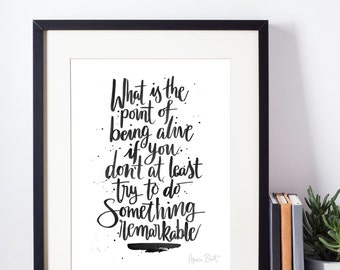 What is the
point of
being alive
if you
don't at least
try to do
Something
remarkable